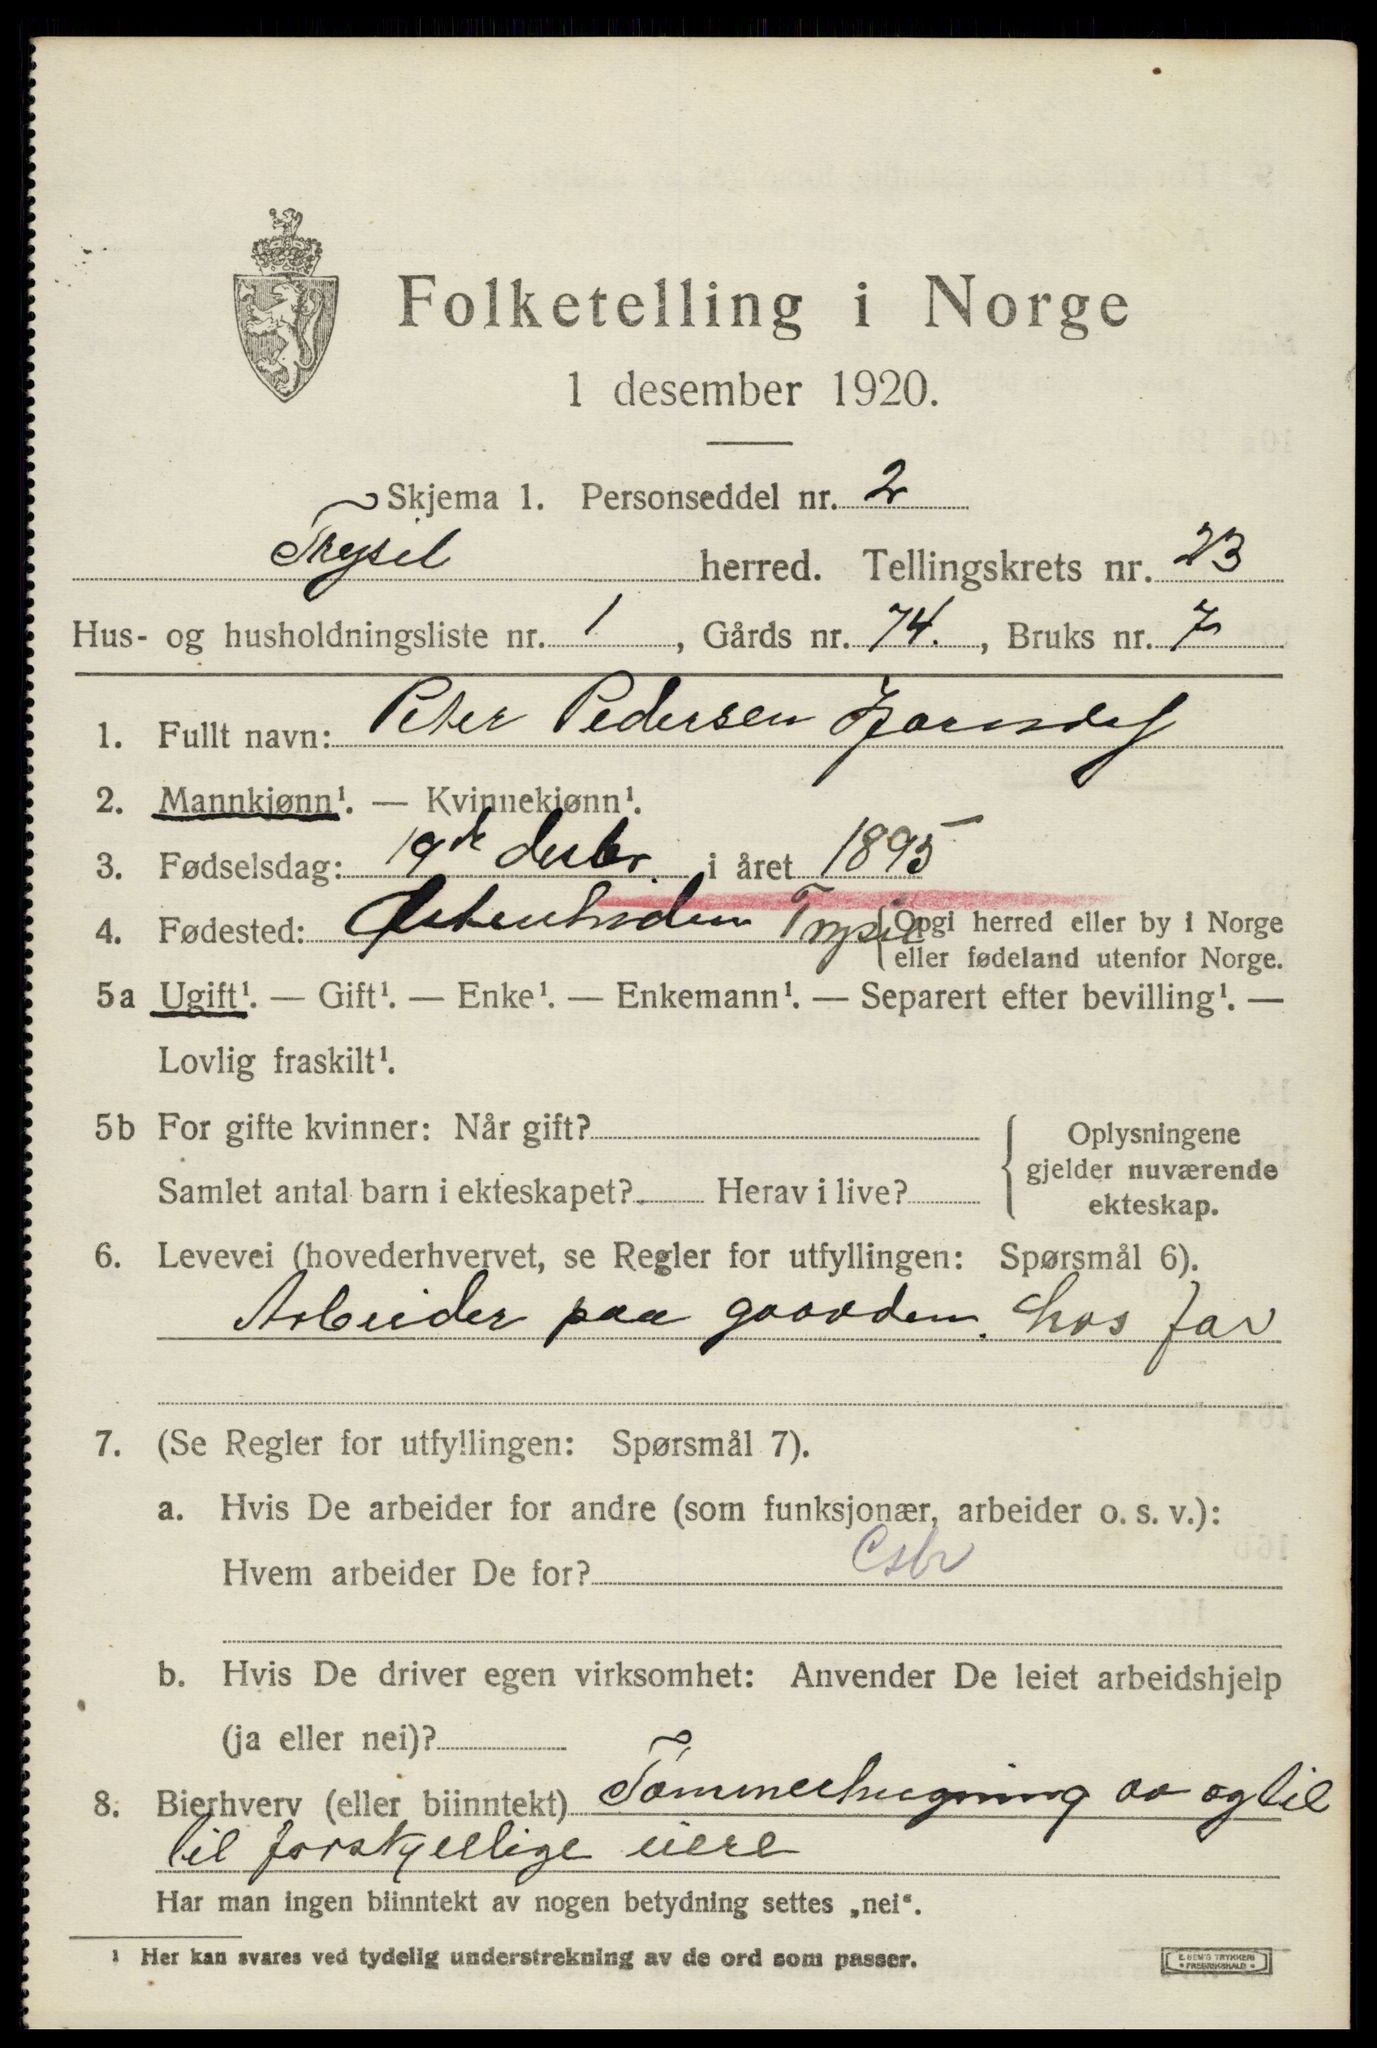 Folketelling i Norge
1 desember 1920.
Skjema 1. Personseddel nr. 2
Trysil herred. Tellingskrets nr. 23
Hus- og husholdningsliste nr. 1, Gårds nr. 74., Bruks nr. 7
1. Fullt navn: Peter Pedersen
2. Mannkjønn¹. — Kvinnekjønn¹.
3. Fødselsdag: 19de desbr. i året 1895
4. Fødested: Trysil {Opgi herred eller by i Norge
eller fødeland utenfor Norge.
5a Ugift¹. — Gift¹. — Enke¹. — Enkemann¹. — Separert efter bevilling¹. —
Lovlig fraskilt¹.
5b For gifte kvinner: Når gift?
Samlet antal barn i ekteskapet? Herav i live?
Oplysningene
gjelder nuværende
ekteskap.
6. Levevei (hovederhvervet, se Regler for utfyllingen: Spørsmål 6).
Arbeider paa gaarden. hos far
7. (Se Regler for utfyllingen: Spørsmål 7).
a. Hvis De arbeider for andre (som funksjonær, arbeider o. s. v.):
Hvem arbeider De for?
b. Hvis De driver egen virksomhet: Anvender De leiet arbeidshjelp
(ja eller nei)?
8. Bierhverv (eller biinntekt) Tømmerhugning av og til
til forskjellige eiere
Har man ingen biinntekt av nogen betydning settes „nei“.
¹ Her kan svares ved tydelig understrekning av de ord som passer.
E. SEM'S TRYKKERI
* FREDRIKSHALD *